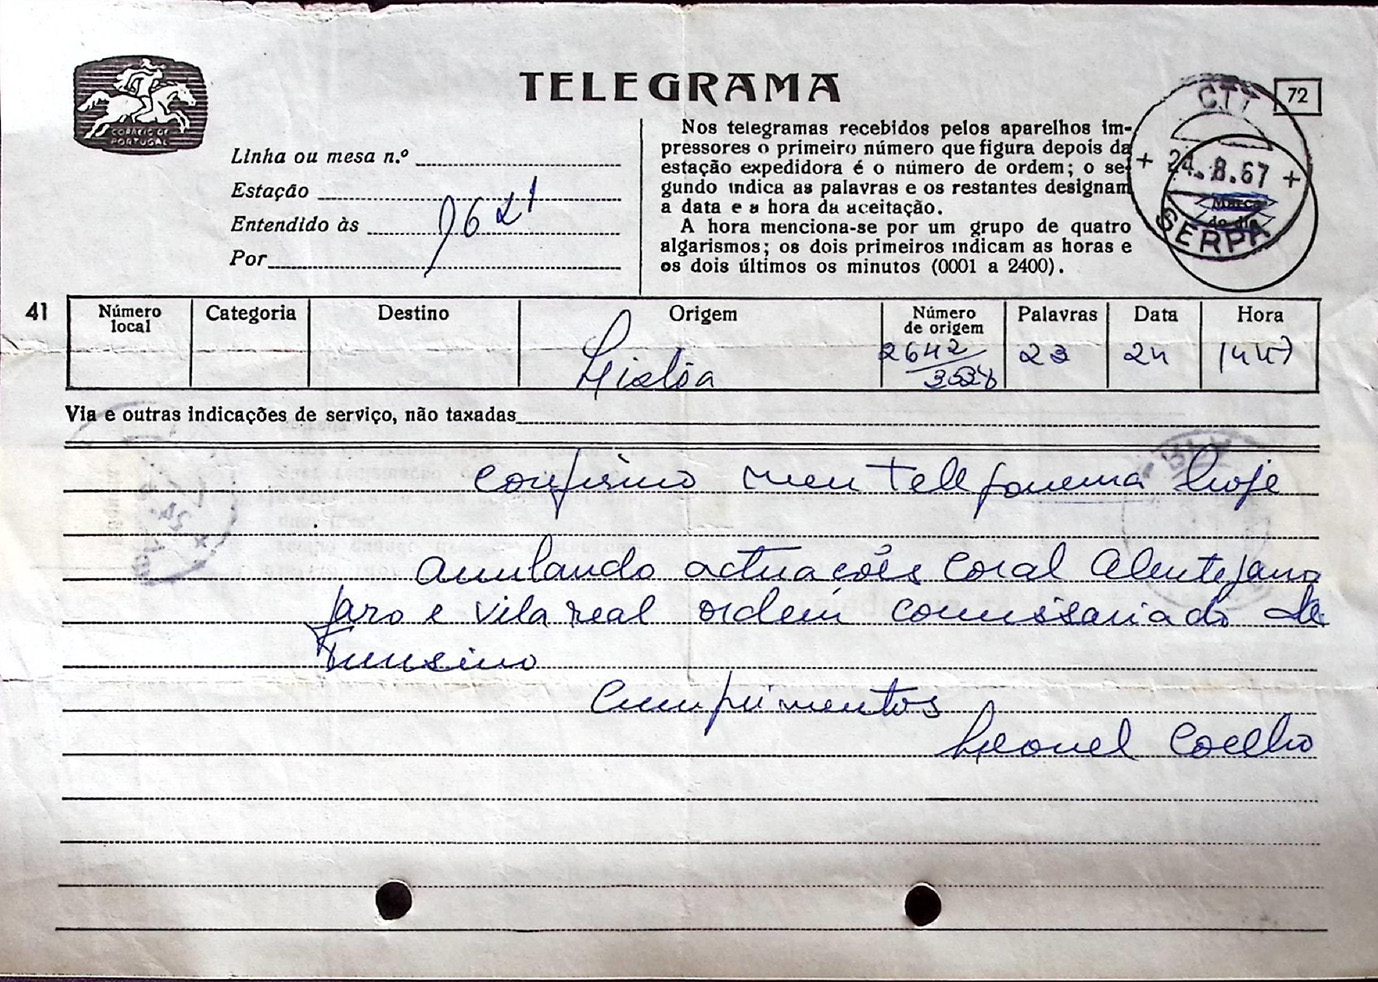 TELEGRAMA
CORREIO DE
PORTUGAL
72
CTT
24.8.67
Marca
do dia
SERPA
Linha ou mesa n.º
Estação
Entendido às
Por
Nos telegramas recebidos pelos aparelhos im-
pressores o primeiro número que figura depois da
estação expedidora é o número de ordem; o se-
gundo indica as palavras e os restantes designam
a data e a hora da aceitação.
A hora menciona-se por um grupo de quatro
algarismos; os dois primeiros indicam as horas e
os dois últimos os minutos (0001 a 2400).
41
Número local Categoria Destino Origem Número de origem Palavras Data Hora
Lisboa 2642 23 24
Via e outras indicações de serviço, não taxadas
Confirmo meu telefonema hoje
anulando actuações Coral Alentejano
faro e vila real ordem comissariado de
Turismo
Cumprimentos
Leonel Coelho